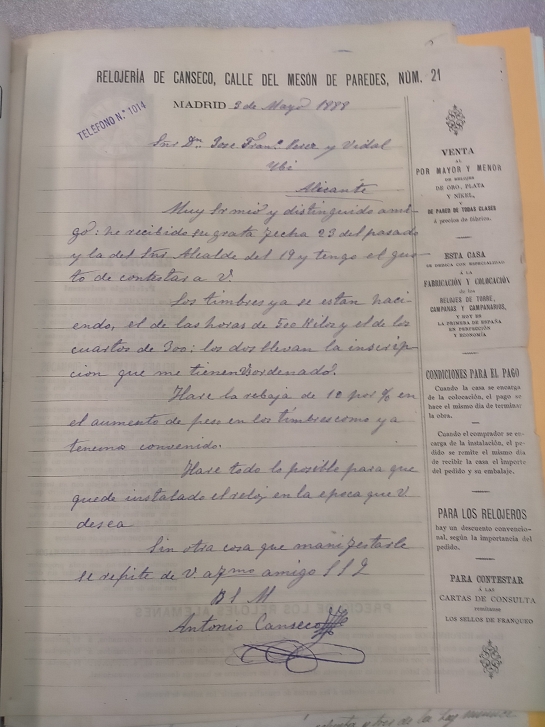 RELOJERÍA DE CANSECO, CALLE DEL MESÓN DE PAREDES, NÚM. 21
MADRID 2 de Mayo 1888
TELEFONO N.º 1014
Snr Dn Jose Franc Perez y Vidal
Ybi
Alicante
Muy Sr mio y distinguido ami-
go: he recibido su grata fecha 23 del pasado
y la del Snr Alcalde del 19 y tengo el gus-
to de contestar a V.
Los timbres ya se estan haci-
endo, el de las horas de 500 Kilos y el de los
cuartos de 300: los dos llevan la inscrip-
cion que me tienen Vordenado.
Hare la rebaja de 12 por % en
el aumento de peso en los timbres como ya
tenemo convenido.
Hare todo lo posible para que
quede instalado el reloj en la epoca que V
desea
Sin otra cosa que manifestarle
se repite de V afmo amigo S S Q
B S M
Antonio Canseco
VENTA
AL
POR MAYOR Y MENOR
DE RELOJES
DE ORO, PLATA
Y NÍKEL,
Y
DE PARED DE TODAS CLASES
á precios de fábrica.
ESTA CASA
SE DEDICA CON ESPECIALIDAD
Á LA
FABRICACIÓN Y COLOCACIÓN
de los
RELOJES DE TORRE,
CAMPANAS Y CAMPANARIOS,
Y HOY ES
LA PRIMERA DE ESPAÑA
EN PERFECCIÓN
Y ECONOMÍA
CONDICIONES PARA EL PAGO
Cuando la casa se encarga
de la colocación, el pago se
hace el mismo día de terminar
la obra.
Cuando el comprador se en-
carga de la instalación, el pe-
dido se remite el mismo día
de recibir la casa el importe
del pedido y su embalaje.
PARA LOS RELOJEROS
hay un descuento convencio-
nal, según la importancia del
pedido.
PARA CONTESTAR
Á LAS
CARTAS DE CONSULTA
remítanse
LOS SELLOS DE FRANQUEO